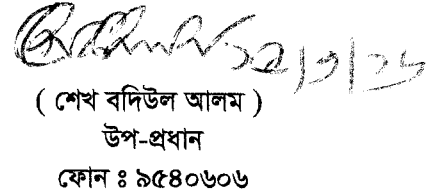 ১২/১/২৬
( শেখ বদিউল আলম )
উপ-প্রধান
ফোন ঃ ৯৫৪০৬০৬